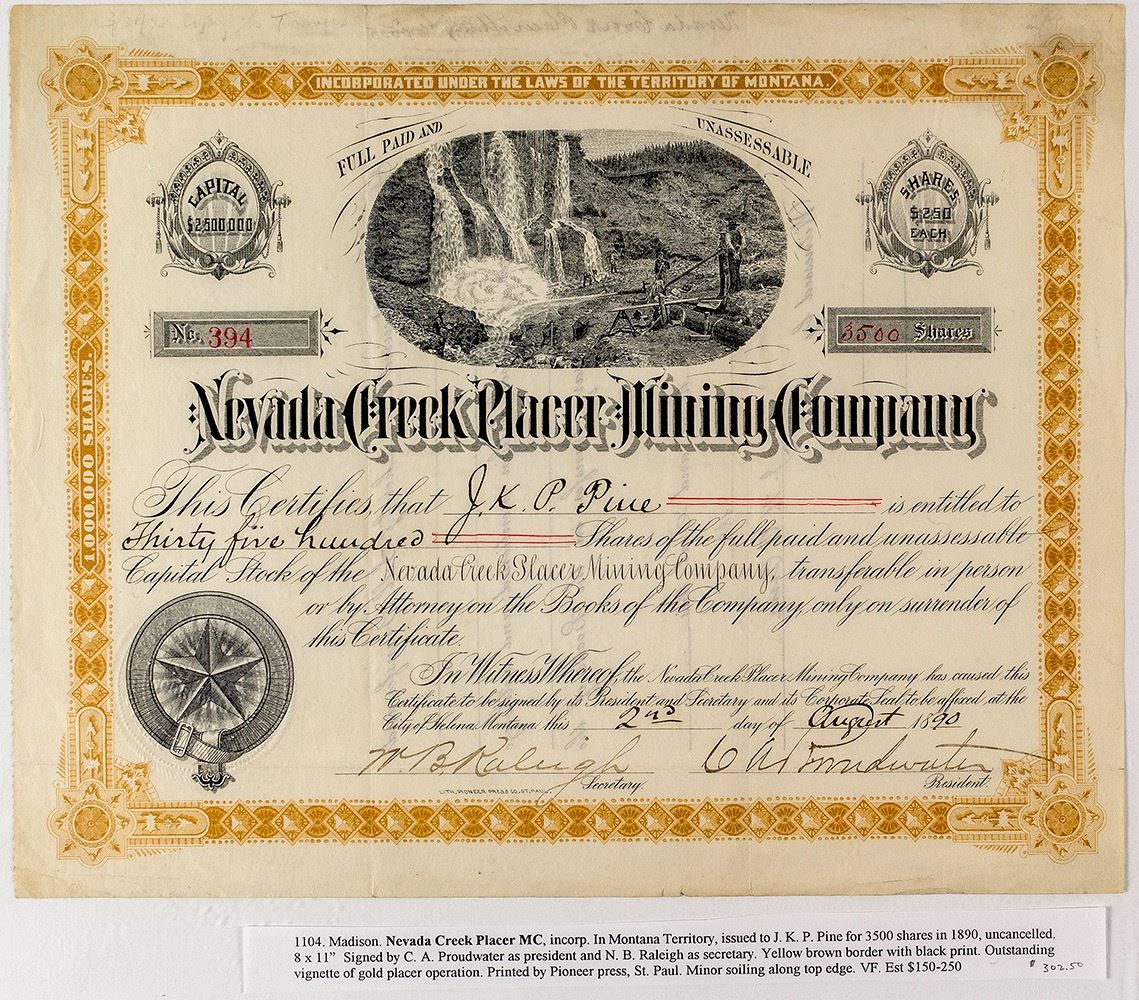 INCORPORATED UNDER THE LAWS OF THE TERRITORY OF MONTANA.
FULL PAID AND UNASSESSABLE
CAPITAL
$2500000
SHARES
$2.50
EACH
No. 394
3500 Shares
Nevada Creek Placer Mining Company
1,000,000 SHARES.
This Certifies that J. K. P. Pine is entitled to
Thirty five hundred Shares of the full paid and unassessable
Capital Stock of the Nevada Creek Placer Mining Company, transferable in person
or by Attorney on the Books of the Company, only on surrender of
this Certificate.
In Witness Whereof, the Nevada Creek Placer Mining Company has caused this
Certificate to be signed by its President and Secretary and its Corporate Seal to be affixed at the
City of Helena, Montana this 2nd day of August 1890
N. B. Raleigh C A Broadwater
Secretary. President.
LITH. PIONEER PRESS CO. ST. PAUL.
1104. Madison. Nevada Creek Placer MC, incorp. In Montana Territory, issued to J. K. P. Pine for 3500 shares in 1890, uncancelled.
8 x 11” Signed by C. A. Proudwater as president and N. B. Raleigh as secretary. Yellow brown border with black print. Outstanding
vignette of gold placer operation. Printed by Pioneer press, St. Paul. Minor soiling along top edge. VF. Est $150-250 $ 302.50